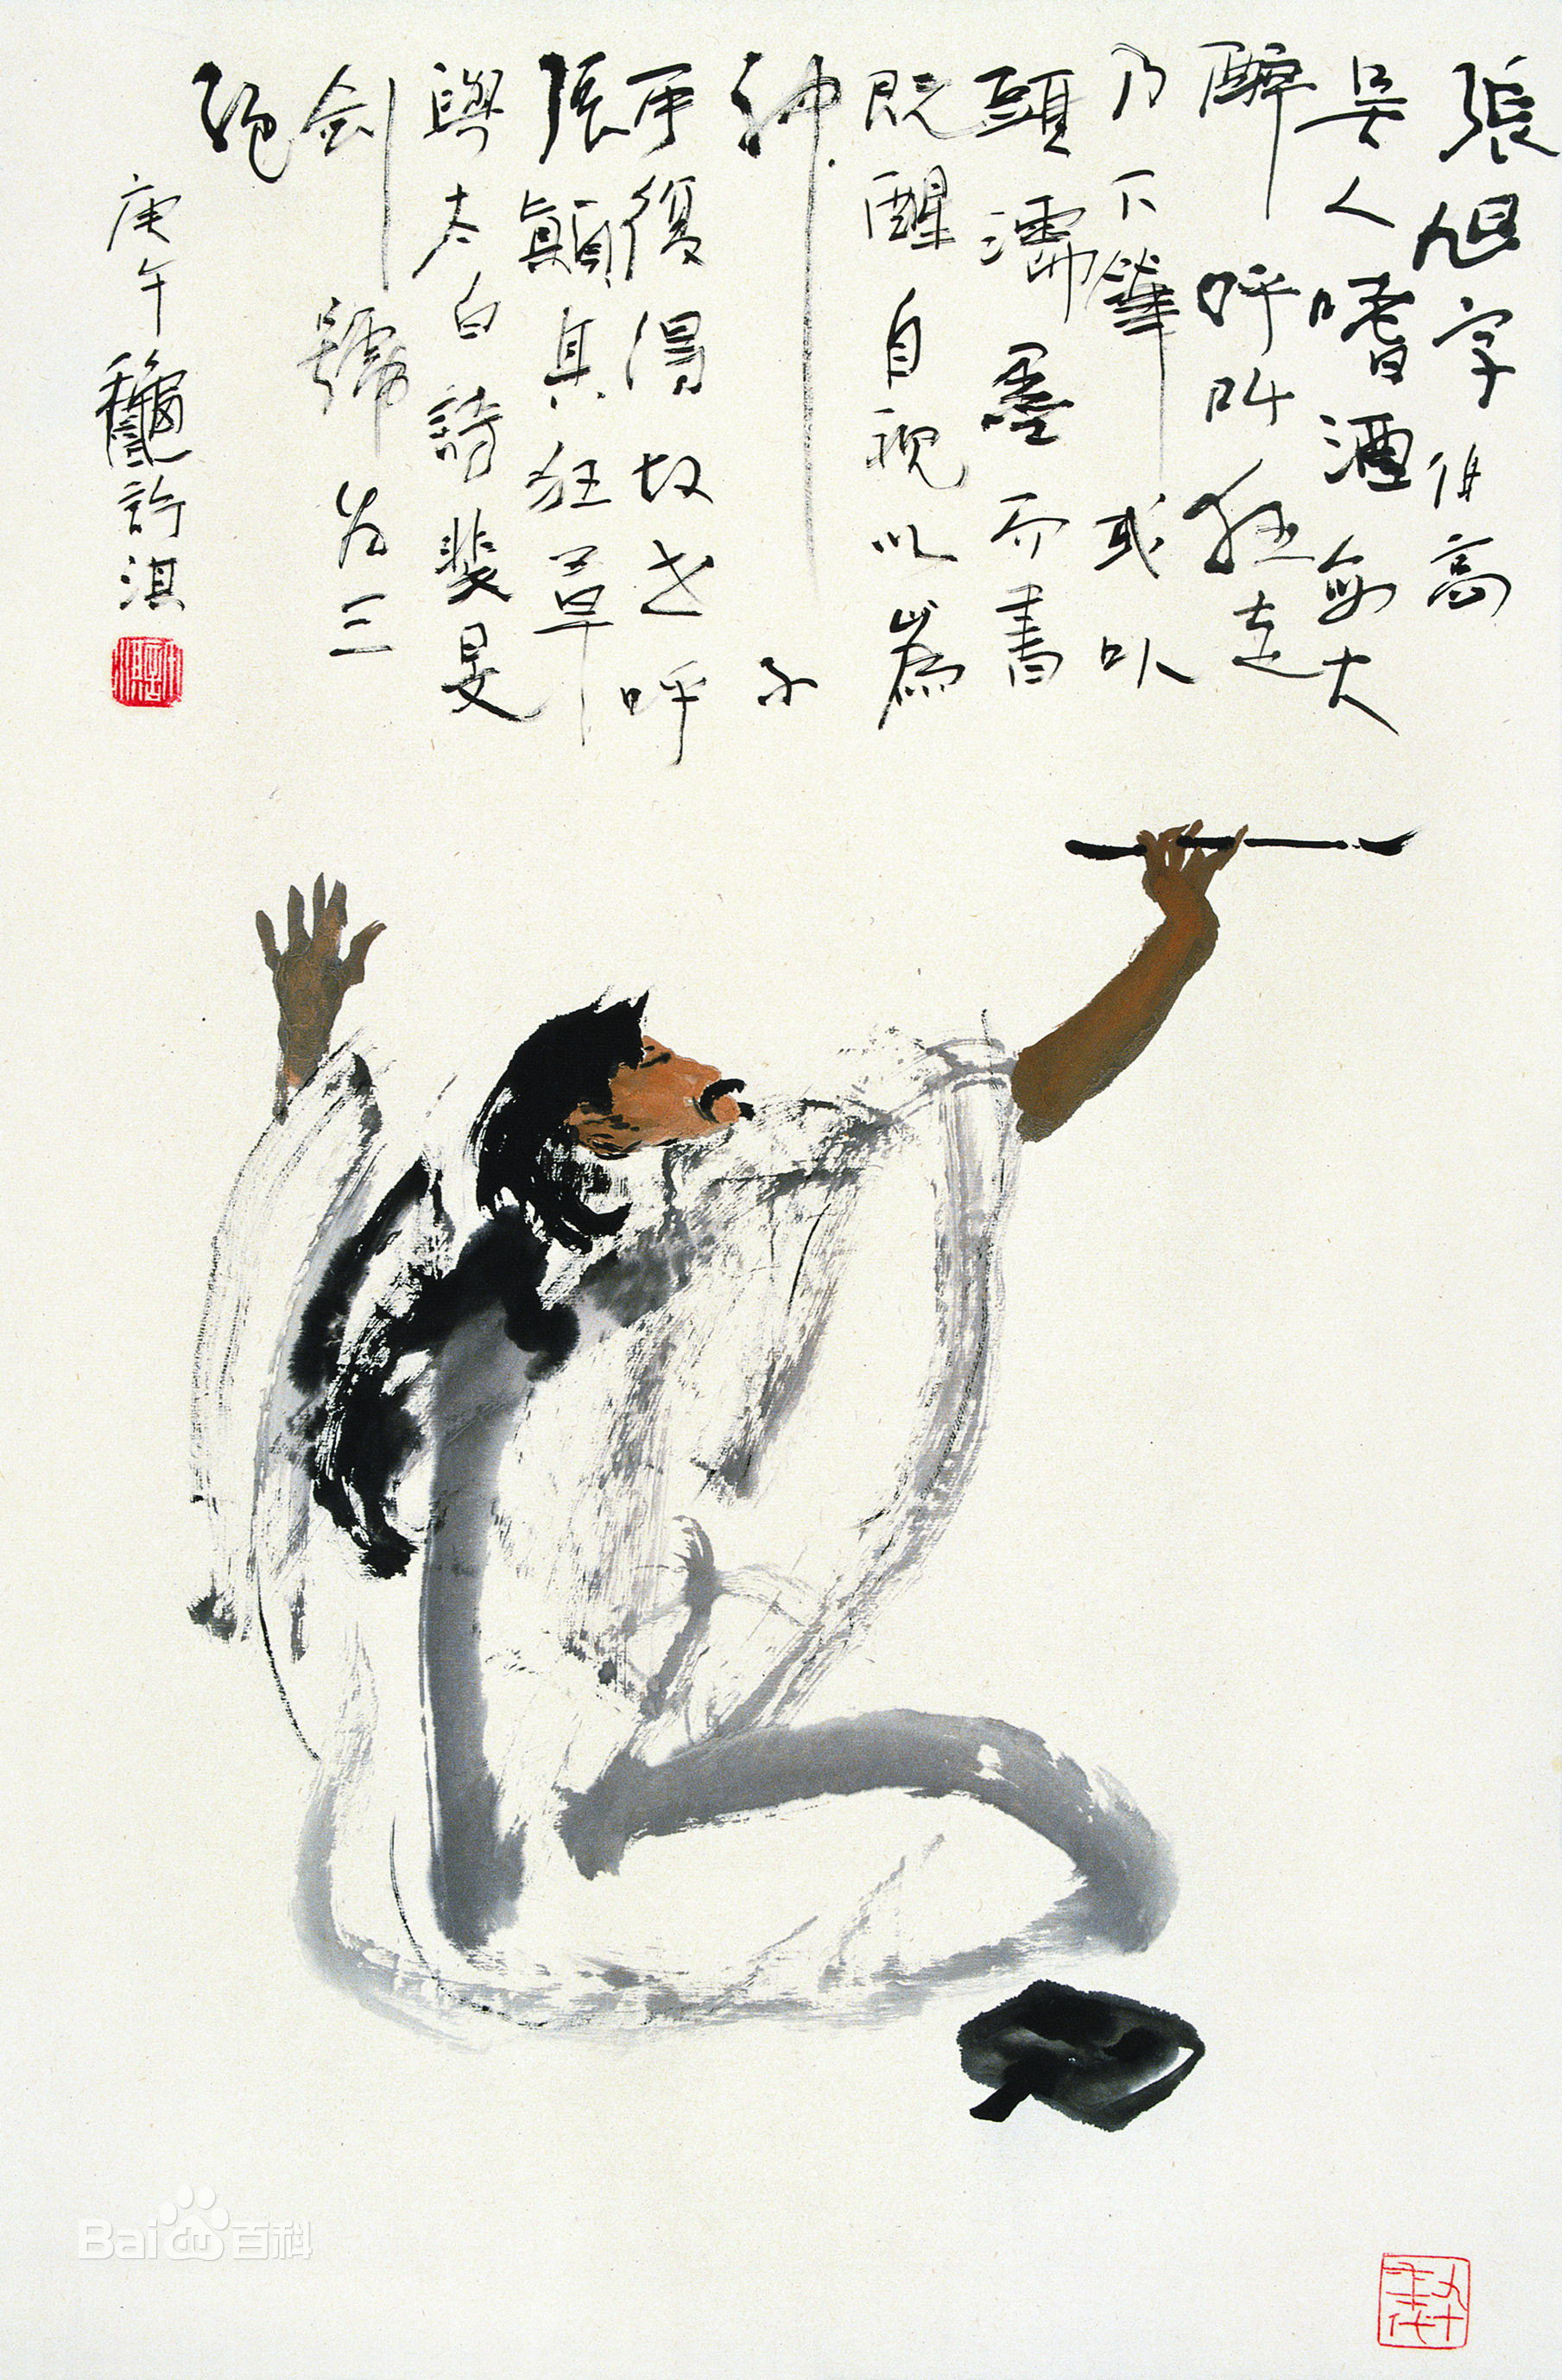 張旭字伯高
吳人嗜酒每大
醉呼叫狂走
乃下筆或以
頭濡墨而書
既醒自視以為
神不
可復得故世呼
張顛其狂草
與太白詩裴旻
劍號為三
絕
庚午龝許淇
九十年代
Bai百科